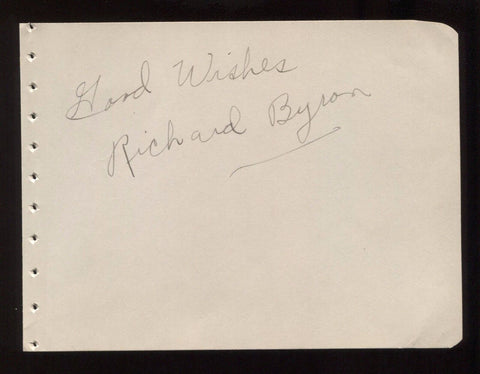 Good Wishes
Richard Byron